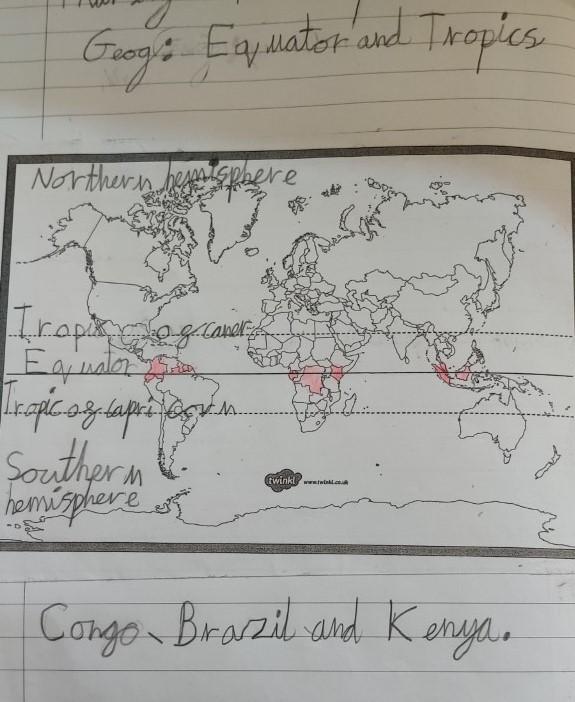 Geog: Equator and Tropics
Northern hemisphere
Tropic og cancer
Equator
Tropic og capricorn
Southern
hemisphere
twinkl www.twinkl.co.uk
Congo, Brazil and Kenya.